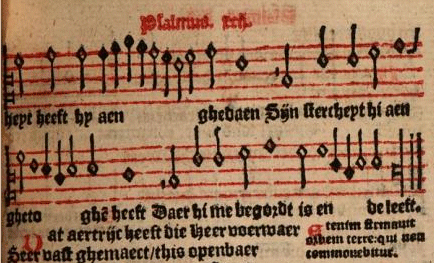 Psalmus. xcij.
heyt heeft hy aen ghedaen Sijn stercheyt hi aen
gheto ghē heeft Daer hi me begordt is en de leeft.
at aertrijc heeft die Heer voerwaer
Seer vast ghemaect/this openbaer
Etenim firmauit
orbem terre: qui non
commouebitur.